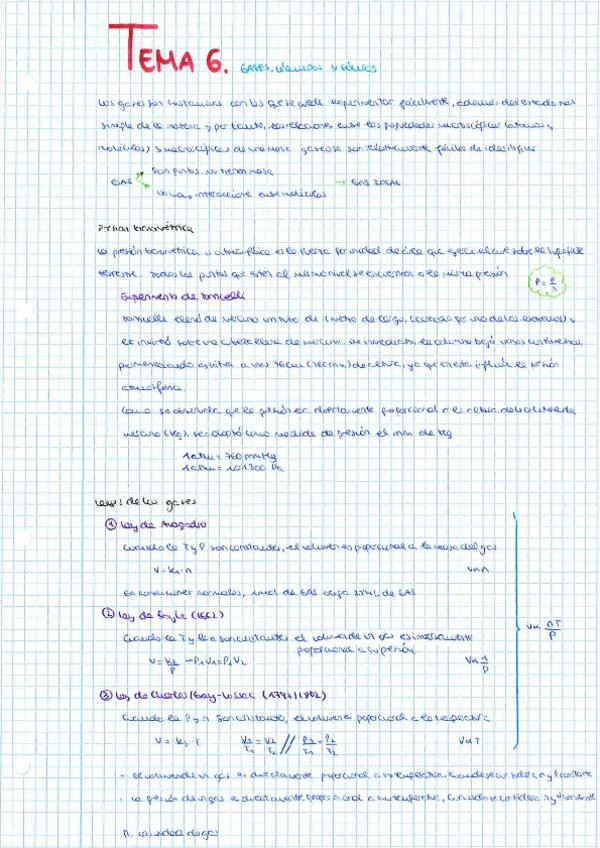 TEMA 6. GASES, LÍQUIDOS Y SÓLIDOS
Los gases son sustancias con las que se puede experimentar fácilmente, además del estado más
simple de la materia y por tanto, las relaciones entre las propiedades microscópicas (átomos y
moléculas) y macroscópicas de una masa gaseosa son relativamente fáciles de identificar
GAS
Son puntos, no tienen masa
No hay interacciones entre moléculas → GAS IDEAL
Presión barométrica
La presión barométrica o atmosférica es la fuerza por unidad de área que ejerce el aire sobre la superficie
terrestre. Todos los puntos que estén al mismo nivel se encuentran a la misma presión
P = F/S
Experimento de Torricelli
Torricelli llenó de mercurio un tubo de 1 metro de largo, (cerrado por uno de los extremos) y
lo invirtió sobre una cubeta llena de mercurio. De inmediato la columna bajó varios centímetros,
permaneciendo estática a unos 76cm (760mm) de altura, ya que en esta influye la presión
atmosférica.
Como se observaba que la presión era directamente proporcional a la altura de la columna de
mercurio (Hg), se adoptó como medida de presión el mm de Hg
1 atm = 760 mmHg
1 atm = 101300 Pa
Leyes de los gases
① Ley de Avogadro
Cuando la T y P son constantes, el volumen es proporcional a la masa del gas
V = k₁·n V∝n
En condiciones normales, 1 mol de GAS ocupa 22'4L de GAS
② Ley de Boyle (1662)
Cuando la T y n son constantes el volumen de un gas es inversamente
proporcional a su presión
V = k₂/P → P₁V₁ = P₂V₂ V∝ 1/P
V∝ nT/P
③ Ley de Charles/Gay-Lussac (1787/1802)
Cuando la P y n son constantes, el volumen es proporcional a la temperatura
V = k₃·T V₁/T₁ = V₂/T₂ // P₁/T₁ = P₂/T₂ V∝T
- el volumen de un gas es directamente proporcional a su temperatura, cuando se considera n y P constante
- La presión de un gas es directamente proporcional a su temperatura, cuando se considera n y V constante
n: cantidad de gas